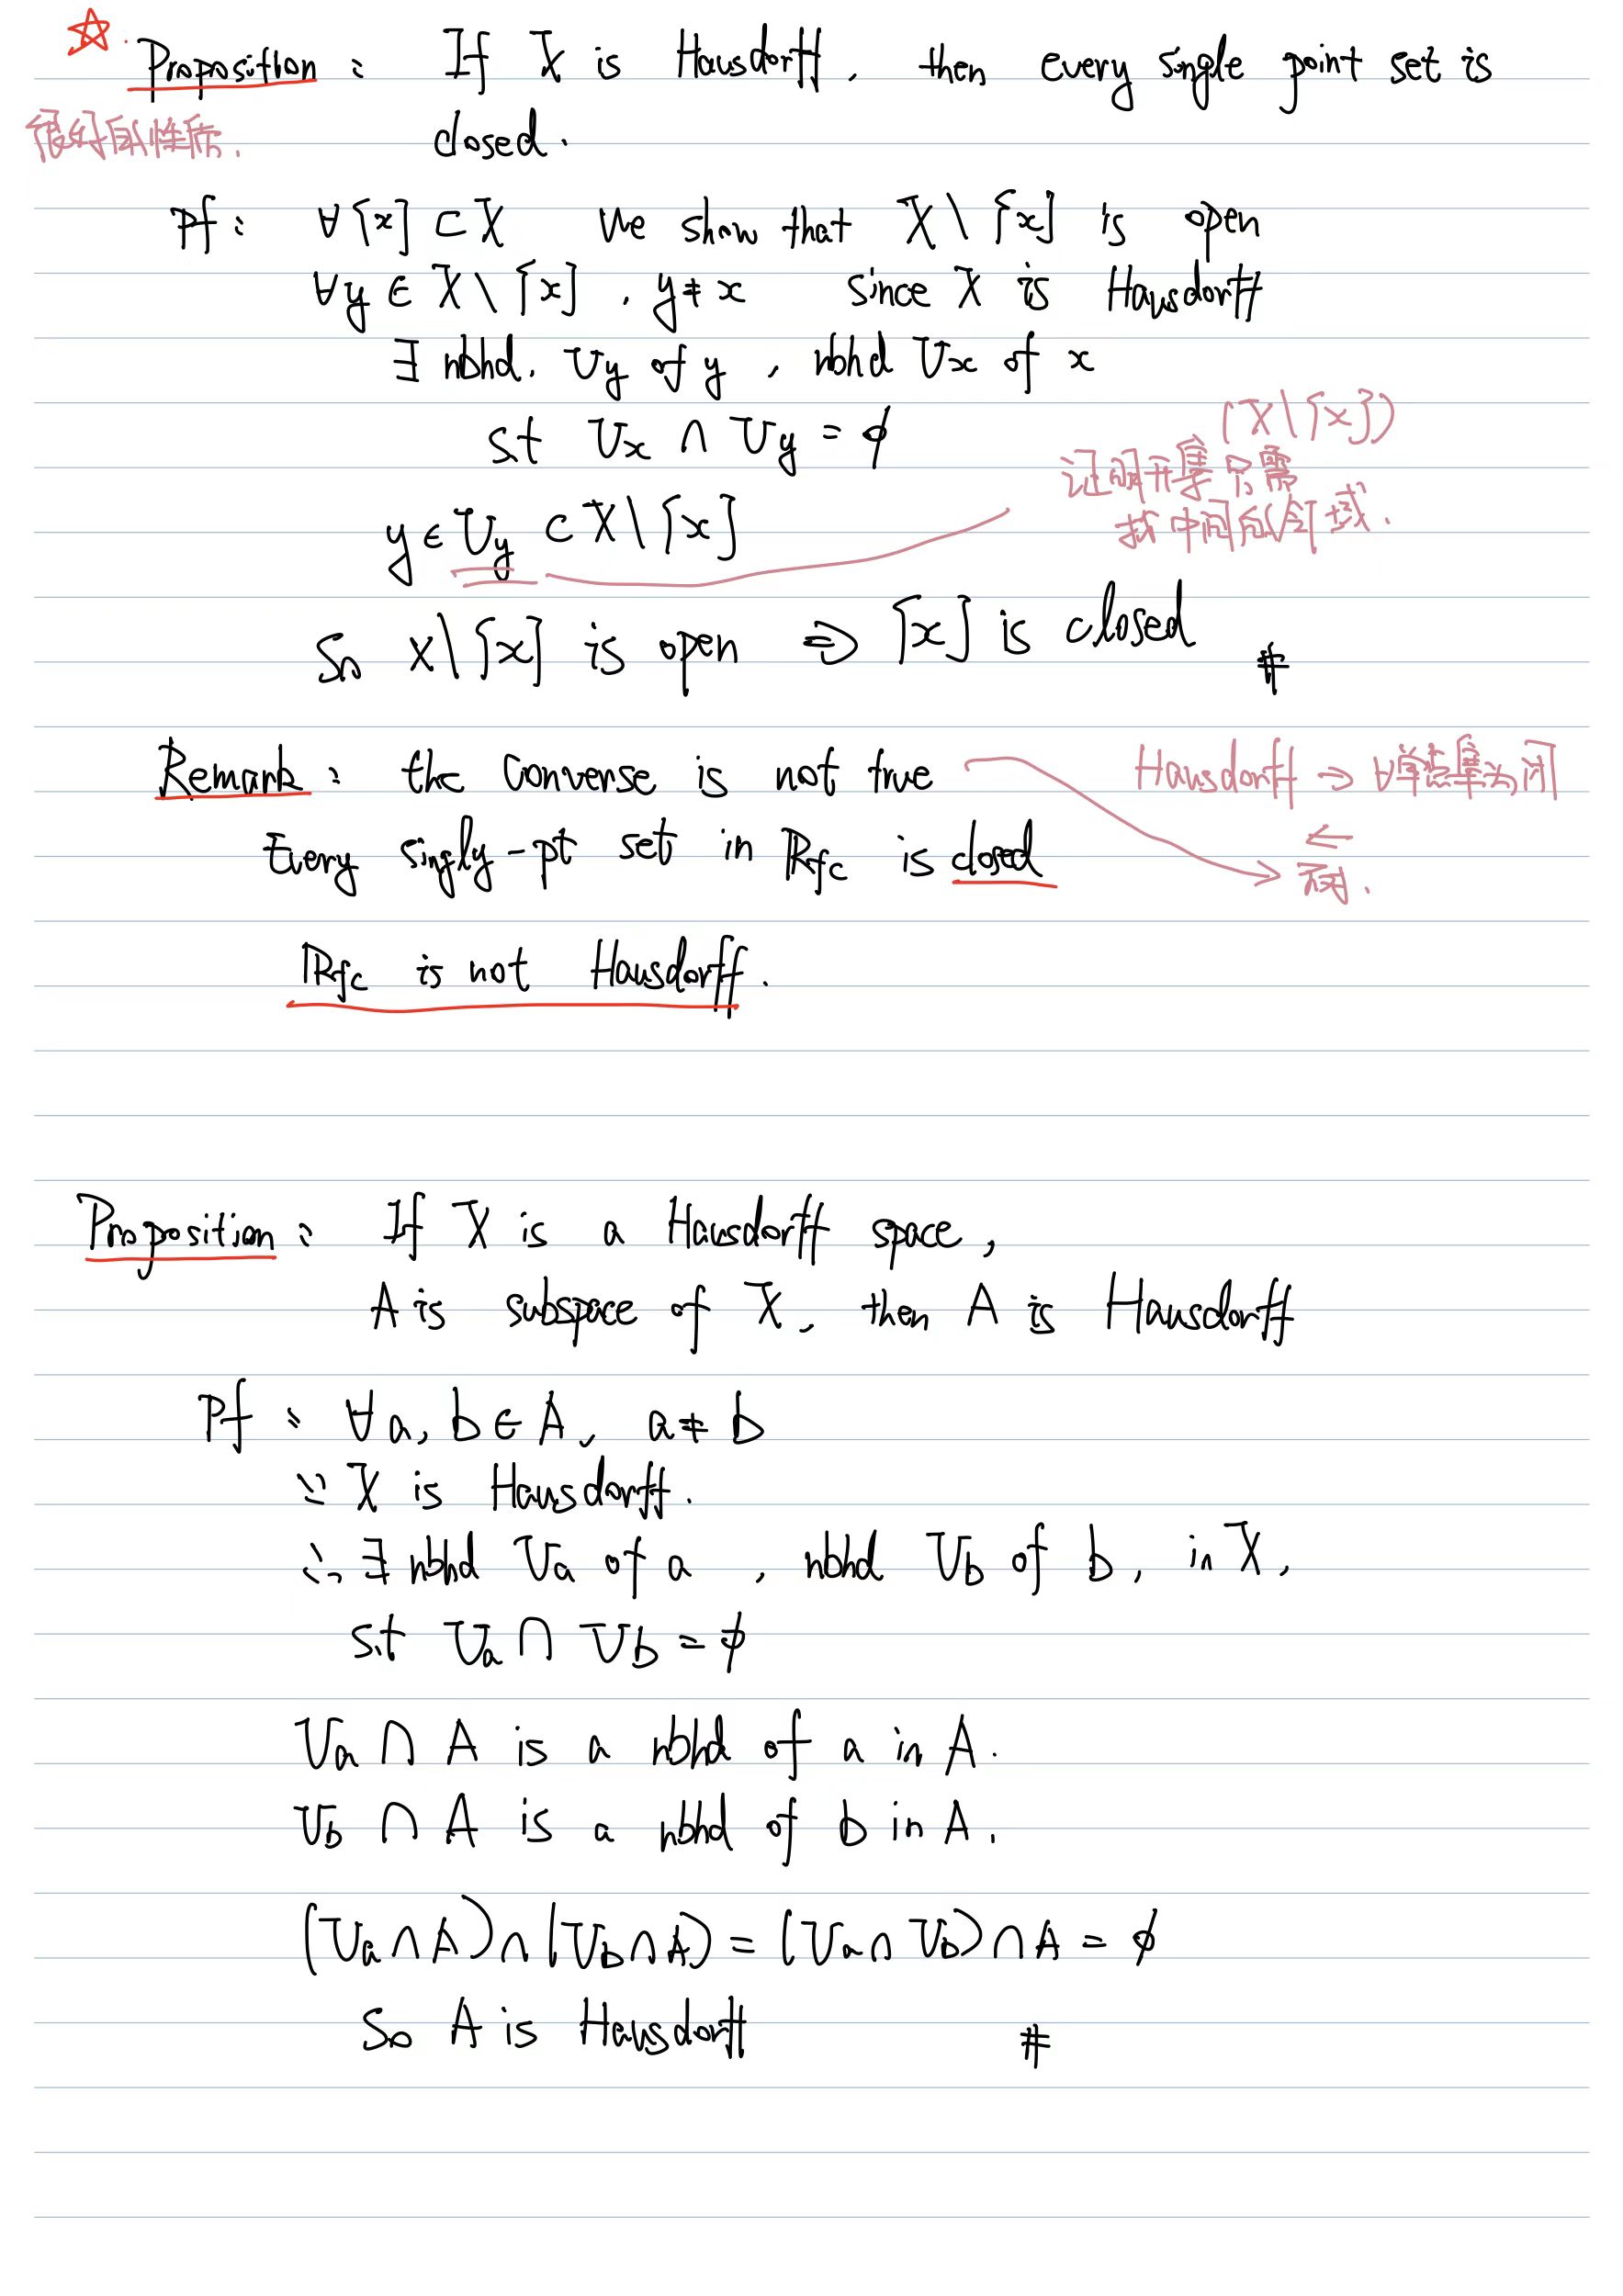 Proposition : If X is Hausdorff, then every single point set is
很好的性质.
closed.
Pf : ∀{x} ⊂ X We show that X \ {x} is open
∀y ∈ X \ {x} , y ≠ x since X is Hausdorff
∃ nbhd. Uy of y , nbhd Ux of x
st Ux ∩ Uy = ϕ
(X\{x})
证明开集只需
找中间的邻域.
y ∈ Uy ⊂ X \ {x}
So X \ {x} is open ⇒ {x} is closed #
Remark : the converse is not true
Hausdorff ⇒ ∀单点集为闭
⇐
不对.
Every singly-pt set in Rfc is closed
Rfc is not Hausdorff.
Proposition : If X is a Hausdorff space,
A is subspace of X, then A is Hausdorff
Pf : ∀a, b ∈ A, a ≠ b
∵ X is Hausdorff.
∴ ∃ nbhd Ua of a , nbhd Ub of b, in X,
s.t Ua ∩ Ub = ϕ
Ua ∩ A is a nbhd of a in A.
Ub ∩ A is a nbhd of b in A.
(Ua ∩ A) ∩ (Ub ∩ A) = (Ua ∩ Ub) ∩ A = ϕ
So A is Hausdorff #